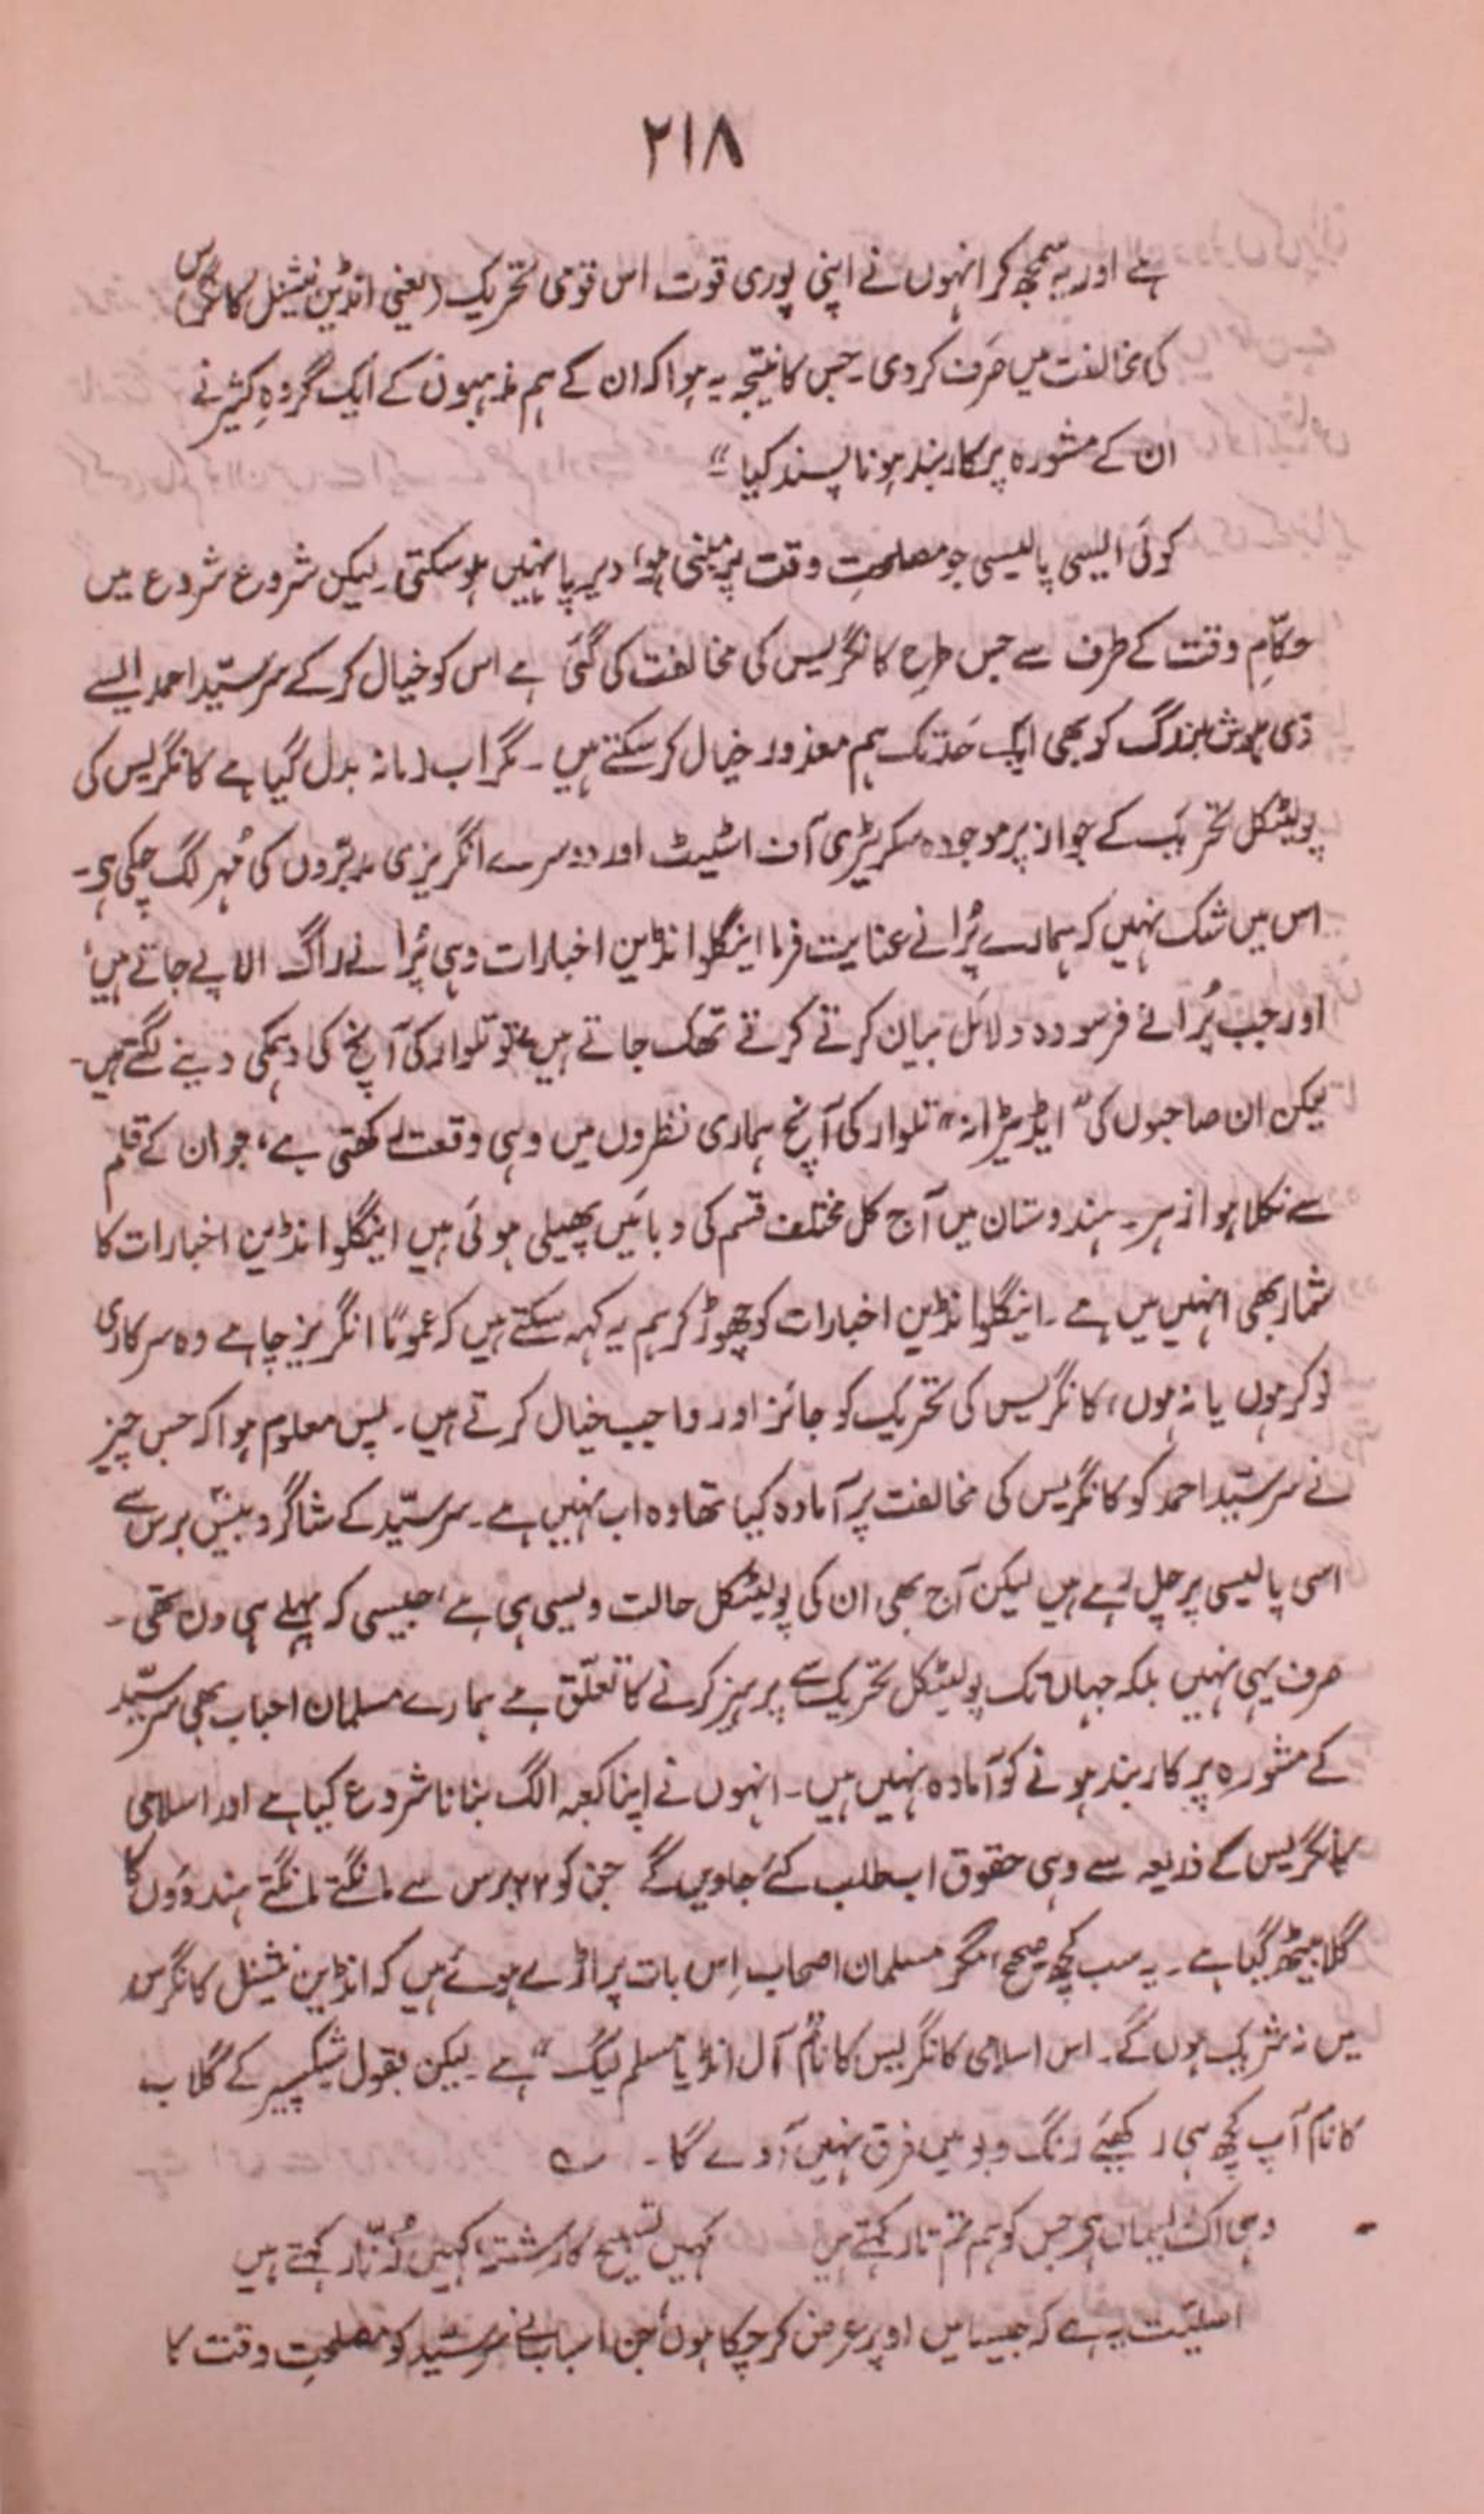 ۲۱۸
ہے اور یہ سمجھ کر انہوں نے اپنی پوری قوت اس قومی تحریک (یعنی انڈین نیشنل کانگرس)
کی مخالفت میں صَرف کر دی۔ جس کا نتیجہ یہ ہوا کہ ان کے ہم مذہبوں کے ایک گروہِ کثیر نے
ان کے مشورہ پر کاربند ہونا پسند کیا"
کوئی ایسی پالیسی جو مصلحتِ وقت پر مبنی ہو، دیرپا نہیں ہو سکتی۔ لیکن شروع شروع میں
حکّامِ وقت کے طرف سے جس طرح کانگریس کی مخالفت کی گئی ہے اس کو خیال کر کے سرسیّد احمد ایسے
ذی ہوش بزرگ کو بھی ایک حَد تک ہم معذور خیال کر سکتے ہیں۔ مگر اب زمانہ بدل گیا ہے کانگریس کی
پولیٹکل تحریک کے جواز پر موجودہ سکریٹری آف اسٹیٹ اور دوسرے انگریزی مدبّروں کی مُہر لگ چکی ہو۔
اس میں شک نہیں کہ ہمارے پُرانے عنایت فرما اینگلو انڈین اخبارات وہی پُرانے راگ الاپے جاتے ہیں،
اور جب پُرانے فرسودہ دلائل بیان کرتے کرتے تھک جاتے ہیں، تو تلوار کی آنچ کی دہمکی دینے لگتے ہیں۔
لیکن ان صاحبوں کی "ایڈیٹرانہ" تلوار کی آنچ ہماری نظروں میں وہی وقعت رکھتی ہے، جو ان کے قلم
سے نکلا ہوا زہر۔ ہندوستان میں آج کل مختلف قسم کی وبائیں پھیلی ہوئی ہیں اینگلو انڈین اخبارات کا
شمار بھی انہیں میں ہے۔ اینگلو انڈین اخبارات کو چھوڑ کر ہم یہ کہہ سکتے ہیں کہ عموماً انگریز چاہے وہ سرکاری
نوکر ہوں یا نہ ہوں، کانگریس کی تحریک کو جائز اور واجب خیال کرتے ہیں۔ پس معلوم ہوا کہ جس چیز
نے سرسیّد احمد کو کانگریس کی مخالفت پر آمادہ کیا تھا وہ اب نہیں ہے۔ سرسیّد کے شاگرد بیس برس سے
اسی پالیسی پر چل رہے ہیں لیکن آج بھی ان کی پولیٹکل حالت ویسی ہی ہے، جیسی کہ پہلے ہی دن تھی۔
صرف یہی نہیں بلکہ جہاں تک پولیٹکل تحریک سے پرہیز کرنے کا تعلّق ہے ہمارے مسلمان احباب بھی سرسیّد
کے مشورہ پر کاربند ہونے کو آمادہ نہیں ہیں۔ انہوں نے اپنا کعبہ الگ بنانا شروع کیا ہے اور اسلامی
کانگریس کے ذریعہ سے وہی حقوق اب طلب کئے جاویں گے جن کو ۲۲ برس سے مانگتے مانگتے ہندوؤں کا
گلا بیٹھ گیا ہے۔ یہ سب کچھ صحیح، مگر مسلمان اصحاب اِس بات پر اڑے ہوئے ہیں کہ انڈین نیشنل کانگرس
میں نہ شریک ہوں گے۔ اس اسلامی کانگریس کا نام "آل انڈیا مسلم لیگ" ہے۔ لیکن بقول شیکسپیر کے گلاب
کا نام آپ کچھ ہی رکھیئے رنگ و بو میں فرق نہیں آوے گا۔
وہی اک ایماں ہو جس کو ہم تم تار کہتے ہیں کہیں تسبیح کا رشتہ کہیں زُنّار کہتے ہیں
اصلیّت یہ ہے کہ جیسا میں اوپر عرض کر چکا ہوں، جن اسباب نے سرسیّد کو مصلحتِ وقت کا